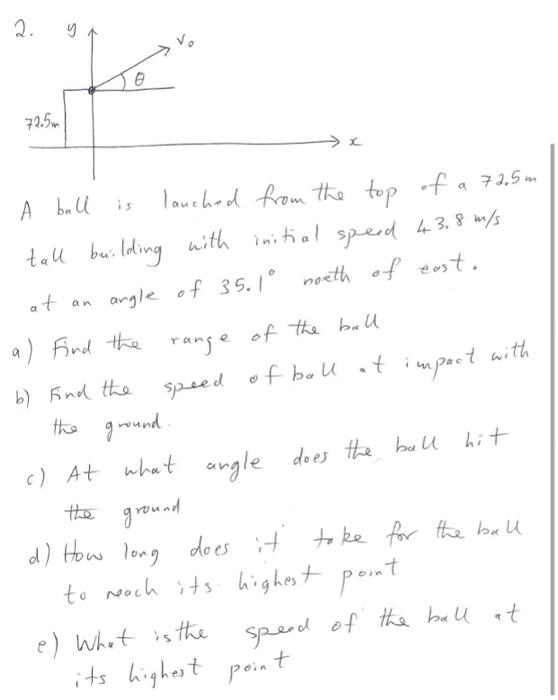 2.
y
v₀
θ
72.5m
x
A ball is lauched from the top of a 72.5m
tall building with initial speed 43.8 m/s
at an angle of 35.1° north of east.
a) Find the range of the ball
b) Find the speed of ball at impact with
the ground.
c) At what angle does the ball hit
the ground
d) How long does it take for the ball
to reach its highest point
e) What is the speed of the ball at
its highest point